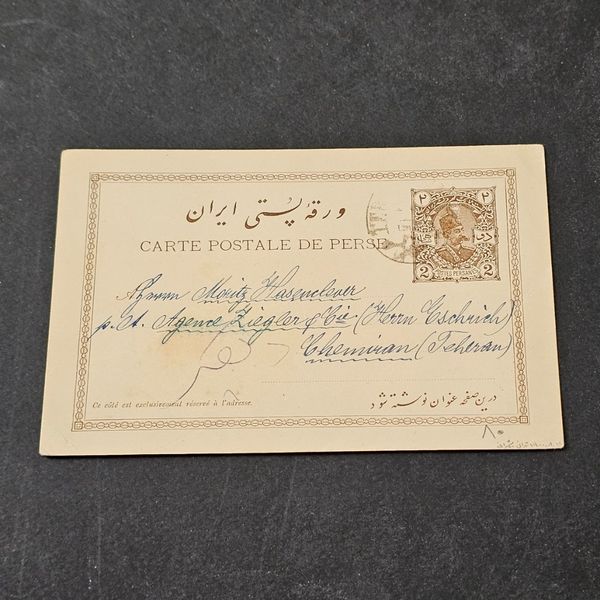 ورقهٔ پستی ایران
CARTE POSTALE DE PERSE
۲ ۲
2 CHAHIS PERSANS 2
Moritz Hasenclever
p. A. Agence Ziegler & Cie (Herrn Eschrich)
Chemiran (Teheran)
Ce côté est exclusivement réservé à l'adresse.
درین صفحه عنوان نوشته شود
۸۰